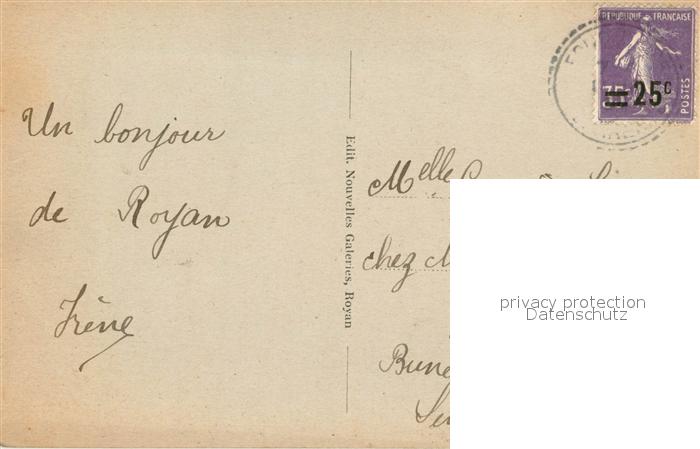 Un bonjour
de Royan
Irène
Edit. Nouvelles Galeries, Royan
REPUBLIQUE FRANÇAISE
25c
POSTES
Melle
chez
privacy protection
Datenschutz